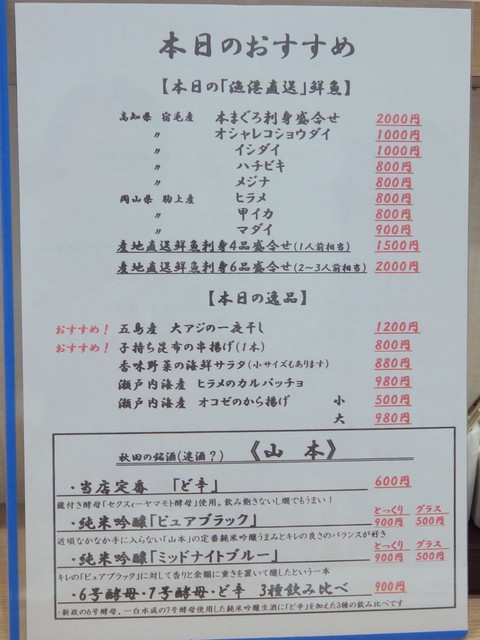 本日のおすすめ
【本日の「漁港直送」鮮魚】
高知県 宿毛産 本まぐろ刺身盛合せ 2000円
〃 オシャレコショウダイ 1000円
〃 イシダイ 1000円
〃 ハチビキ 800円
〃 メジナ 800円
岡山県 胸上産 ヒラメ 800円
〃 甲イカ 800円
〃 マダイ 900円
産地直送鮮魚刺身4品盛合せ(1人前相当) 1500円
産地直送鮮魚刺身6品盛合せ(2~3人前相当) 2000円
【本日の逸品】
おすすめ! 五島産 大アジの一夜干し 1200円
おすすめ! 子持ち昆布の串揚げ(1本) 800円
香味野菜の海鮮サラタ(小サイズもあります) 880円
瀬戸内海産 ヒラメのカルパッチョ 980円
瀬戸内海産 オコゼのから揚げ 小 500円
大 980円
秋田の銘酒(迷酒?) 《山本》
・当店定番 「ど辛」 600円
蔵付き酵母「セクスィーヤマモト酵母」使用。飲み飽きないし燗でもうまい!
・純米吟醸「ピュアブラック」 とっくり 900円 グラス 500円
近頃なかなか手に入らない「山本」の定番純米吟醸うまみとキレの良さのバランスが好き
・純米吟醸「ミッドナイトブルー」 とっくり 900円 グラス 500円
キレの「ピュアブラック」に対して香りと余韻に重きを置いて醸したという一本
・6号酵母・7号酵母・ど辛 3種飲み比べ 900円
・新政の6号酵母、一白水成の7号酵母使用した純米吟醸生酒に「ど辛」を加えた3種の飲み比べです